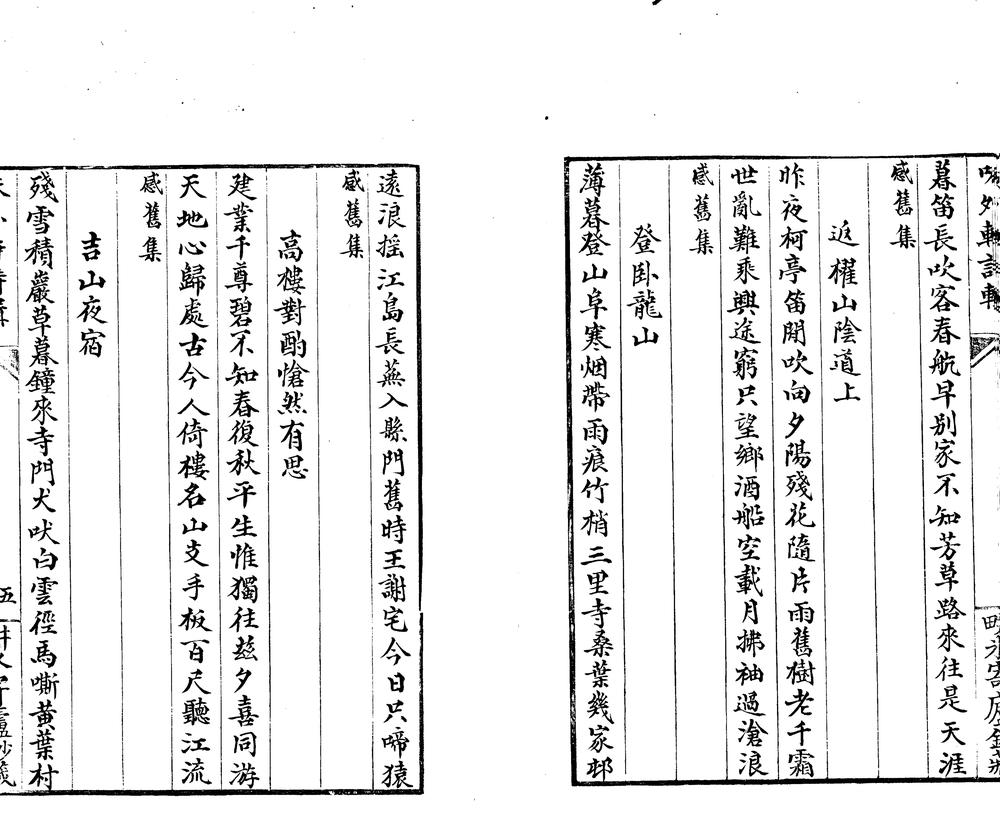 暮笛長吹客春航早别家不知芳草路來往是天涯
感舊集
返櫂山陰道上
昨夜柯亭笛閒吹向夕陽殘花隨片雨舊樹老千霜
世亂難乘興途窮只望鄉酒船空載月拂袖過滄浪
感舊集
登卧龍山
薄暮登山阜寒烟帶雨痕竹梢三里寺桑葉幾家邨
遠浪摇江島長蕪入縣門舊時王謝宅今日只啼猿
感舊集
高樓對酌愴然有思
建業千尊碧不知春復秋平生惟獨往兹夕喜同游
天地心歸處古今人倚樓名山支手板百尺聽江流
感舊集
吉山夜宿
殘雪積巖草暮鐘來寺門犬吠白雲徑馬嘶黄葉村
五